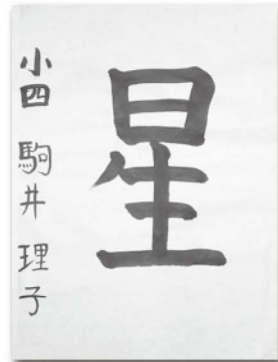 星
小四 駒井 理子